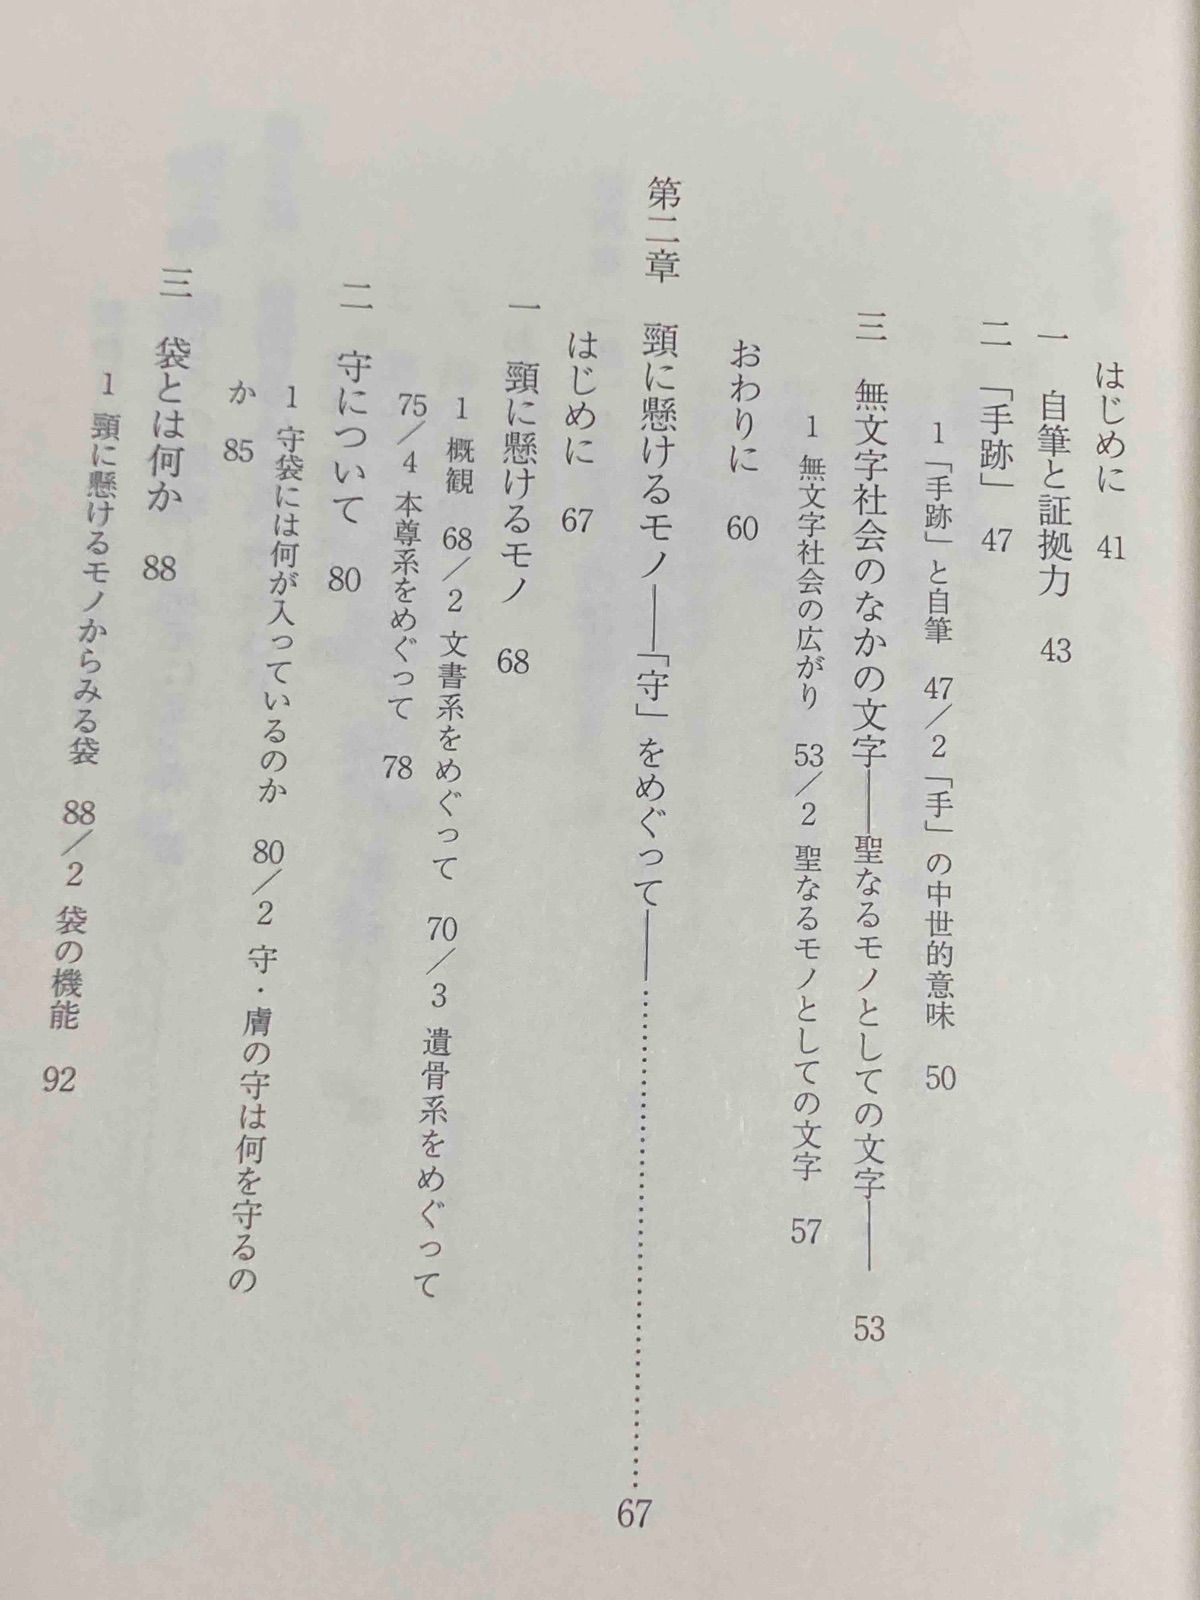 はじめに 41
一 自筆と証拠力 43
二 「手跡」 47
1 「手跡」と自筆 47／2 「手」の中世的意味 50
三 無文字社会のなかの文字――聖なるモノとしての文字―― 53
1 無文字社会の広がり 53／2 聖なるモノとしての文字 57
おわりに 60
第二章 頸に懸けるモノ――「守」をめぐって――………………………………67
はじめに 67
一 頸に懸けるモノ 68
1 概観 68／2 文書系をめぐって 70／3 遺骨系をめぐって
75／4 本尊系をめぐって 78
二 守について 80
1 守袋には何が入っているのか 80／2 守・膚の守は何を守るの
か 85
三 袋とは何か 88
1 頸に懸けるモノからみる袋 88／2 袋の機能 92